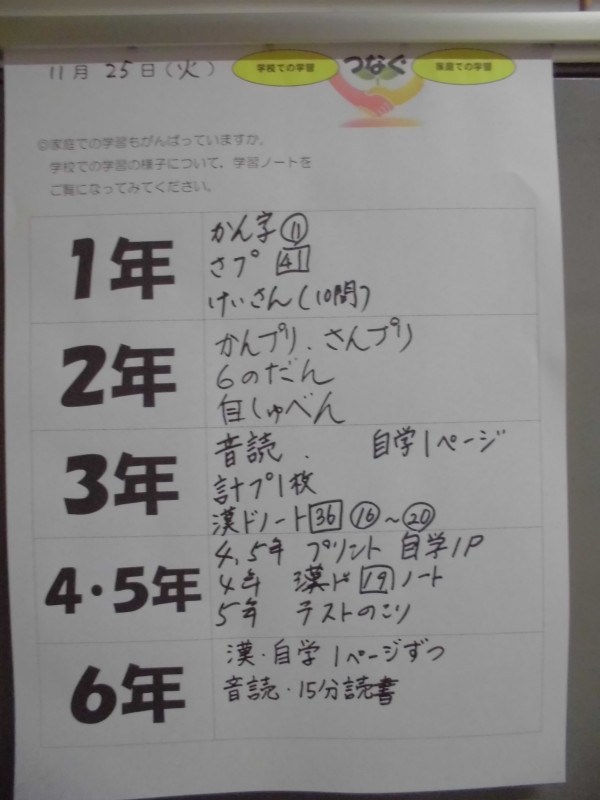 11月 25日(火)
学校での学習 つなぐ 家庭での学習
◎家庭での学習もがんばっていますか。
学校での学習の様子について、学習ノートを
ご覧になってみてください。
1年
かん字⑪
さプ 41
けいさん(10問)
2年
かんプリ、さんプリ
6のだん
自しゅべん
3年
音読、 自学1ページ
計プ1枚
漢ドノート36 ⑯~⑳
4・5年
4,5年 プリント 自学1P
4年 漢ド19ノート
5年 テストのこり
6年
漢・自学 1ページずつ
音読・15分読書